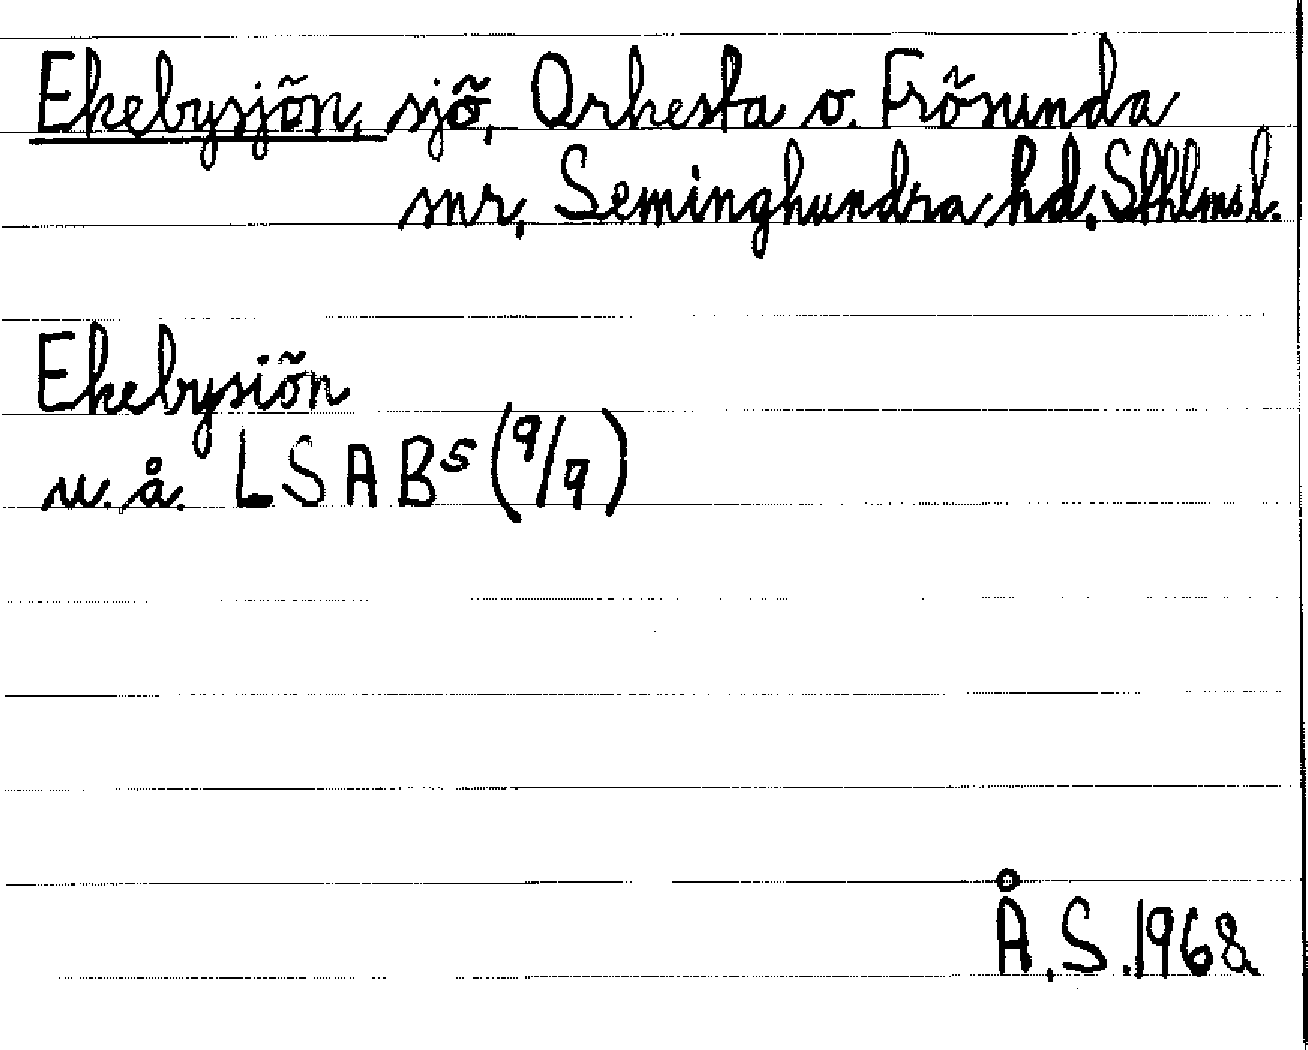 Ekebysjön, sjö, Orkesta o. Frösunda
snr, Seminghundra hd. Sthlms l.
Ekebysiön
u.å. LSA B5 (9/9)
Å.S. 1968